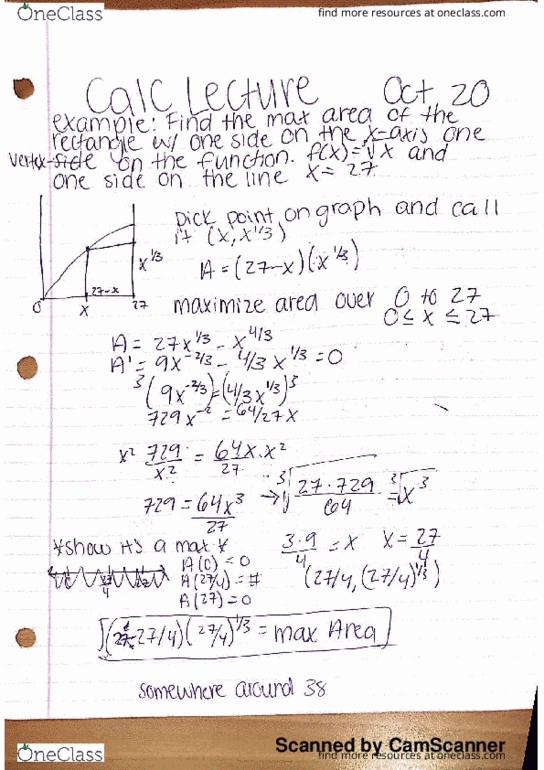 OneClass
find more resources at oneclass.com
Calc Lecture Oct 20
example: Find the max area of the
rectangle w/ one side on the x-axis one
vertex side on the function. f(x)=∛x and
one side on the line x=27
Pick point on graph and call
it (x, x^1/3)
x^1/3
A=(27-x)(x^1/3)
27-x
0 x 27
maximize area over 0 to 27
0≤x≤27
A = 27x^1/3 - x^4/3
A' = 9x^-2/3 - 4/3 x^1/3 = 0
3(9x^-2/3)=(4/3x^1/3)3
729x^-2 = 64/27x
x² 729/x² = 64x·x²/27
729 = 64x³/27 → ∛27·729/64 = ∛x³
*show its a max*
3·9/4 = x x = 27/4
A(0) = 0
A(27/4) = #
A(27) = 0
(27/4, (27/4)^1/3)
(27-27/4)(27/4)^1/3 = max Area
somewhere around 38
Scanned by CamScanner
OneClass
find more resources at oneclass.com